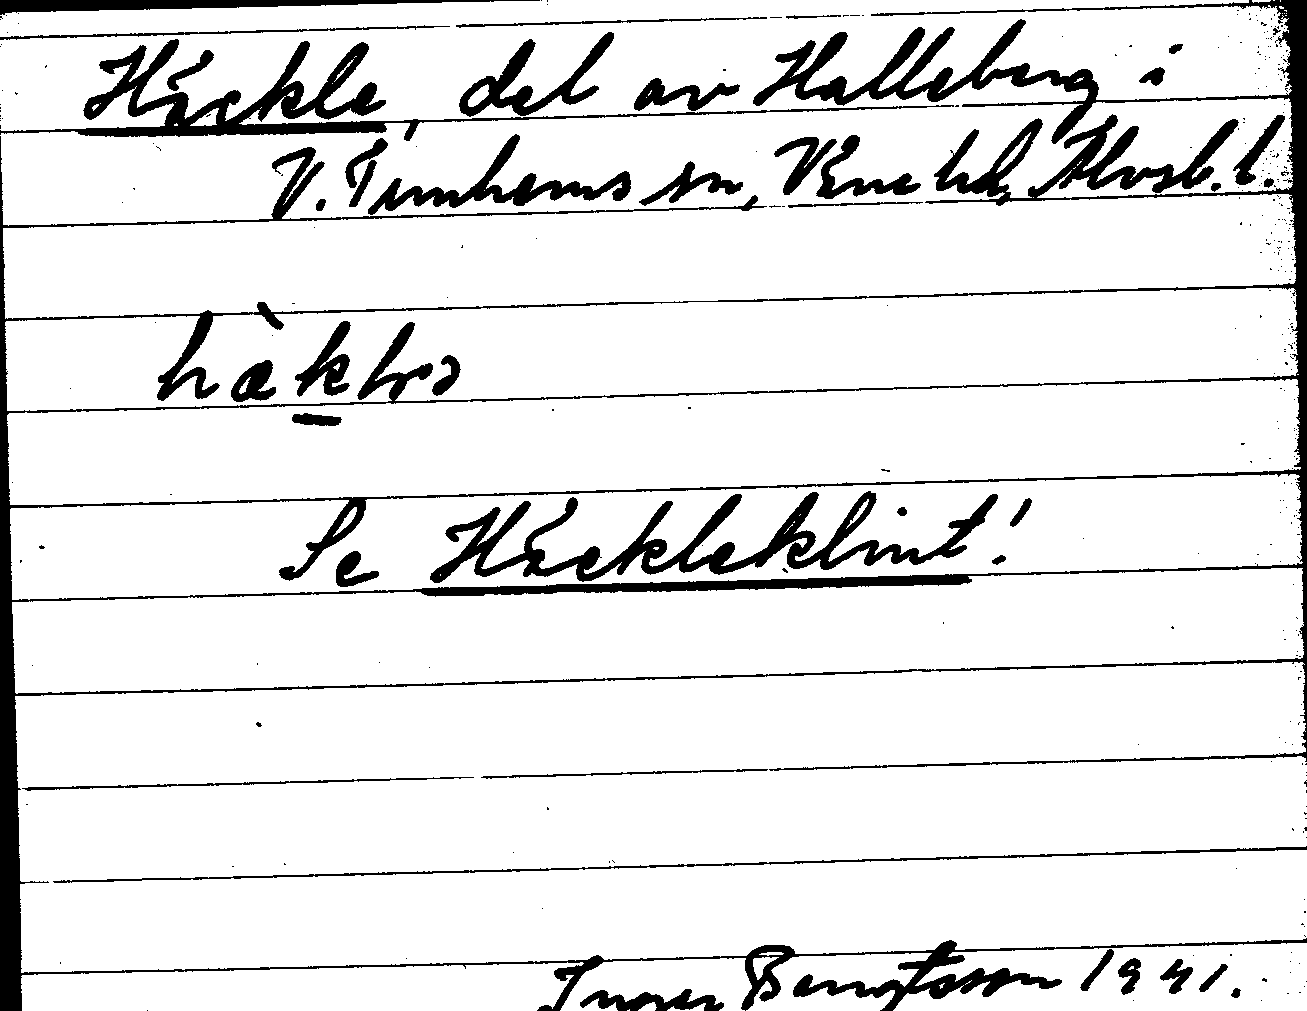 Häckle, del av Halleberg i
V. Tunhems sn, Väne hd, Älvsb. l.
hàklɔ
Se Häckleklint!
Inger Bengtsson 1941.